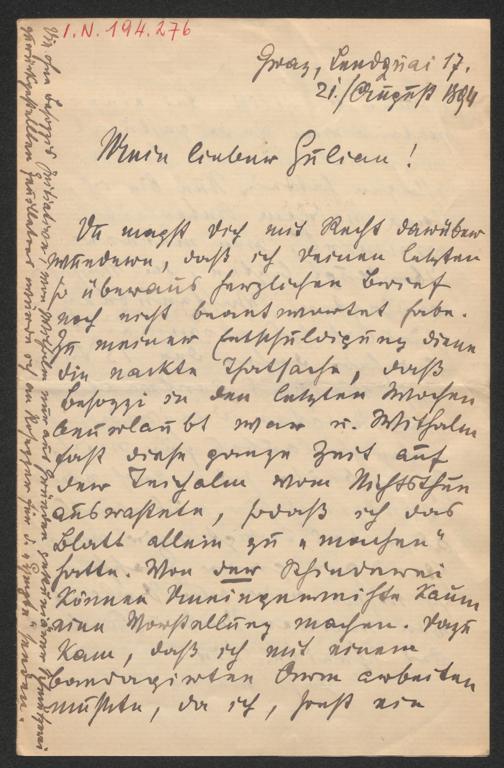 I. N. 194.276
Graz, Lendquai 17.
21./August 1894
Mein lieber Gulian!
Du magst Dich mit Recht darüber
wundern, daß ich Deinen letzten
so überaus herzlichen Brief
noch nicht beantwortet habe.
Zu meiner Entschuldigung diene
die nackte Thatsache, daß
Besozzi in den letzten Wochen
beurlaubt war u. Withalm
fast diese ganze Zeit auf
der Teichalm vom Nichtsthun
ausrastete, sodaß ich das
Blatt allein zu „machen“
hatte. Von der Schinderei
können Uneingeweihte kaum
eine Vorstellung machen. Dazu
kam, daß ich mit einem
bandagirten Arm arbeiten
mußte, da ich, sonst ein
Besozzis Initiative, von Withalm nur aus Gründen